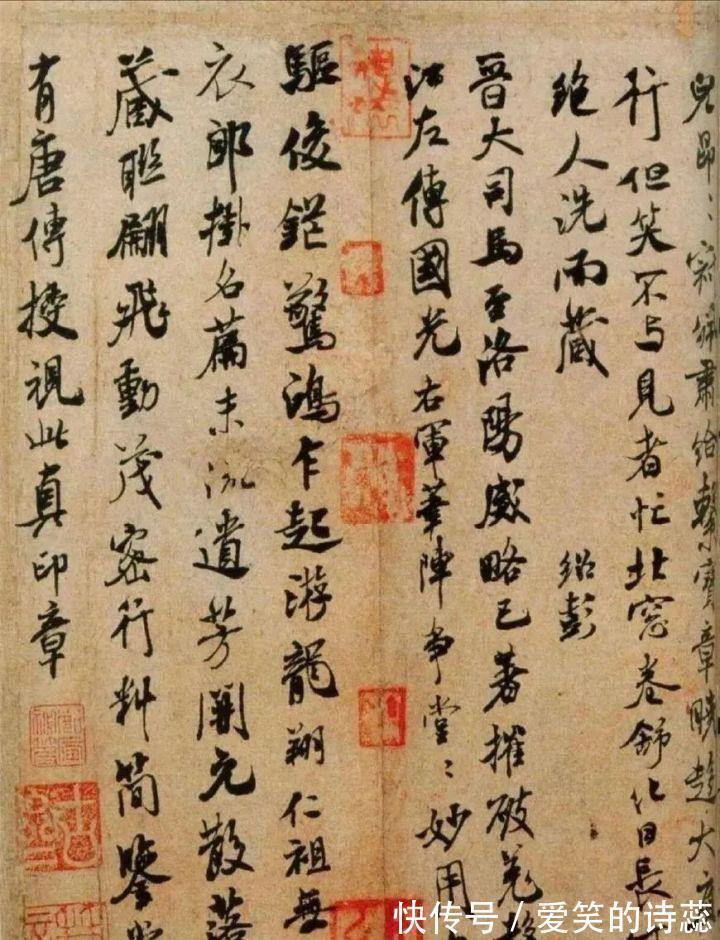 昂〻 肅給 寶章 趨大
行但笑不与見者忙北窓卷舒化日長
絶人洗而藏 紹彭
晉大司馬至洛陽威略已著摧破羌
江左傳國光右軍筆陣爭堂〻妙用
驅俊鋩驚鴻乍起游龍翔仁祖無
衣郎掛名篇末流遺芳開元散落
藏聯翩飛動茂密行料簡鑒
有唐傳授視此真印章
快传号/爱笑的诗蕊